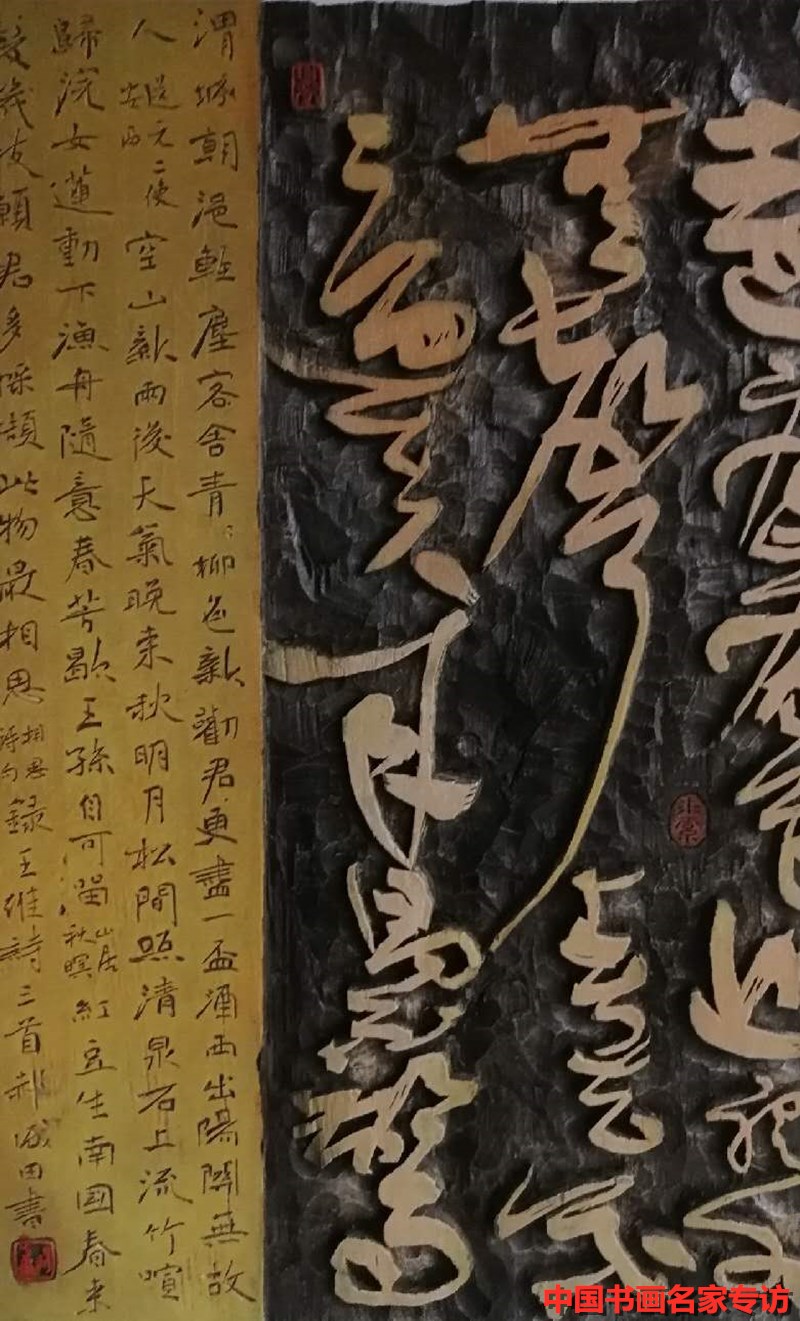 無聲春去花
還在人來鳥不驚
渭城朝浥輕塵客舍青〻柳色新勸君更盡一盃酒西出陽關無故
人送元二使安西空山新雨後天氣晚来秋明月松間照清泉石上流竹喧
歸浣女蓮動下漁舟隨意春芳歇王孫自可留山居秋暝紅豆生南國春来
發幾枝願君多採擷此物最相思相思詩句錄王維詩三首郝成田書
中国书画名家专访